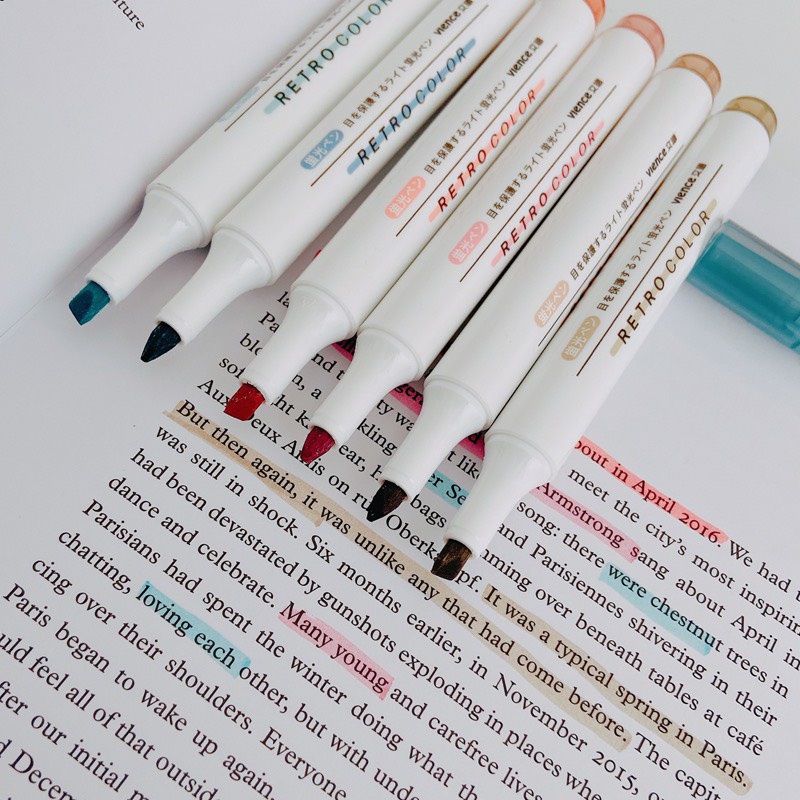 iture
RETRO COLOR
蛍光ペン 目を保護するライト蛍光ペン vience
RETRO COLOR
蛍光ペン 目を保護するライト蛍光ペン vience
RETRO COLOR
蛍光ペン 目を保護するライト蛍光ペン vience
RETRO COLOR
蛍光ペン 目を保護するライト蛍光ペン vience
蛍光ペン 目を保護するライト蛍光ペン vience
RETRO COLOR
bout in April 2016. We had t
meet the city's most inspirin
Armstrong sang about April in
song: there were chestnut trees in
and Parisiennes shivering in their
bags over beneath tables at café
Aux eux Amis on ru Oberka pf. It was a typical spring in Paris.
But then again, it was unlike any that had come before. The capit
was still in shock. Six months earlier, in November 2015, o
had been devastated by gunshots exploding in places whe
dance and celebrate. Many young and carefree lives
Parisians had spent the winter doing what th
chatting, loving each other, but with unde
cing over their shoulders. Everyone
Paris began to wake up again.
uld feel all of that outsid
fter our initial m
d Decem